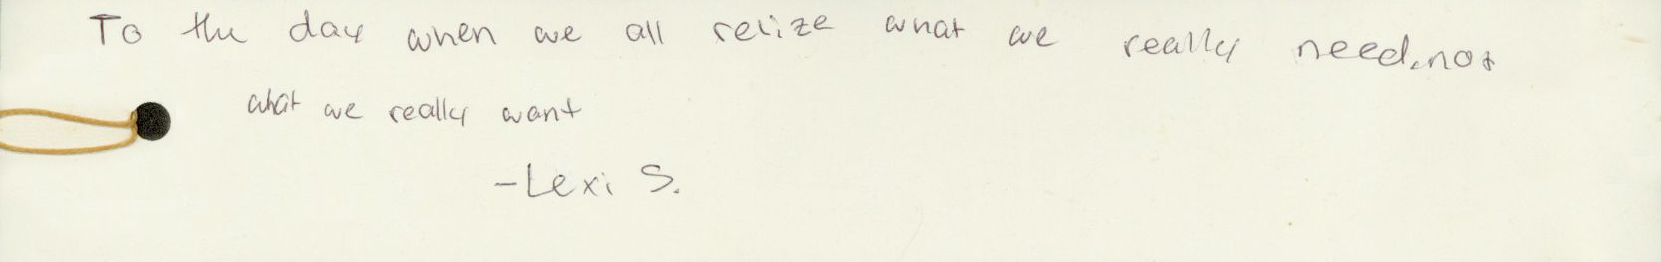 To the day when we all relize what we really need, not
what we really want
-Lexi S.